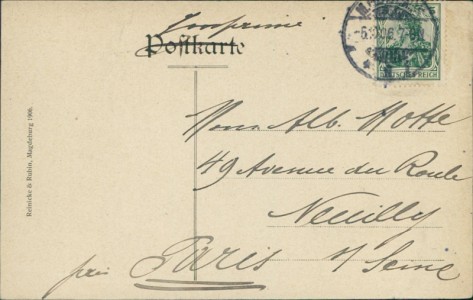 Imprimé
Postkarte
-6.10.06.7-8
DEUTSCHES REICH
Reinicke & Rubin, Magdeburg 1906.
Alb. Hotte
49 Avenue du Roule
Neuilly
près Paris s/ Seine